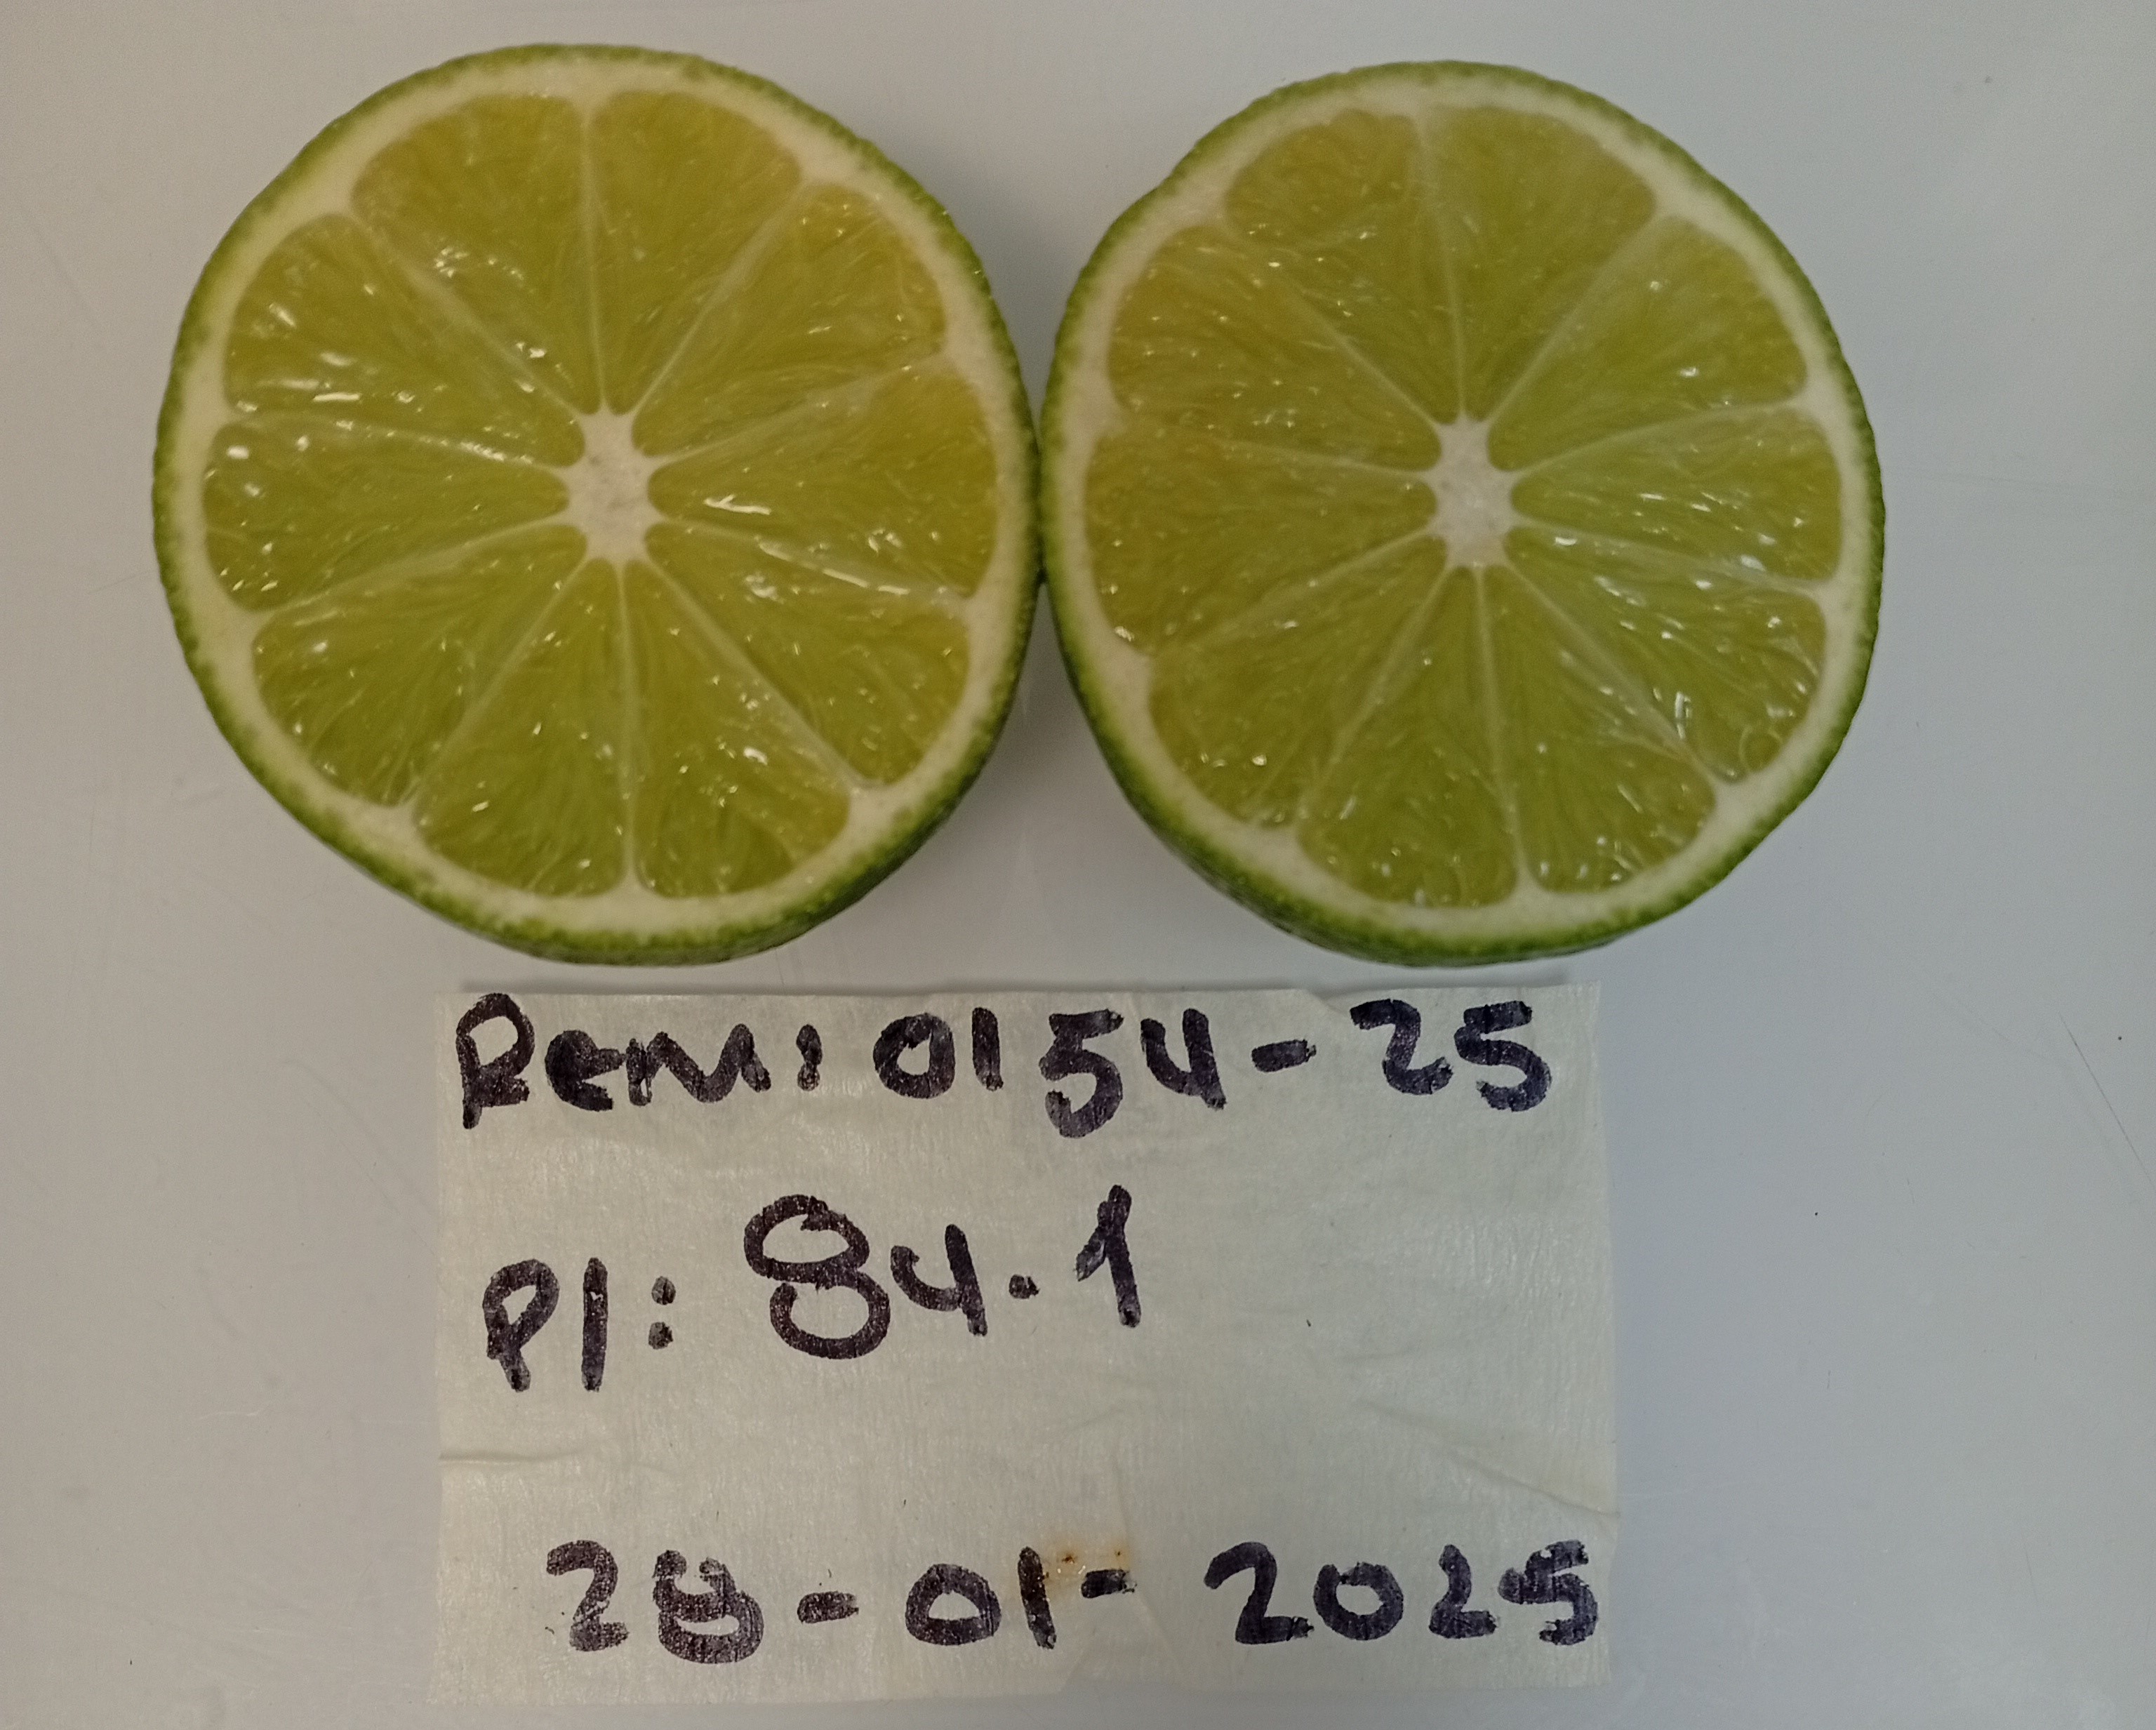 Rem: 0154-25
Pl: 84.1
28-01-2025